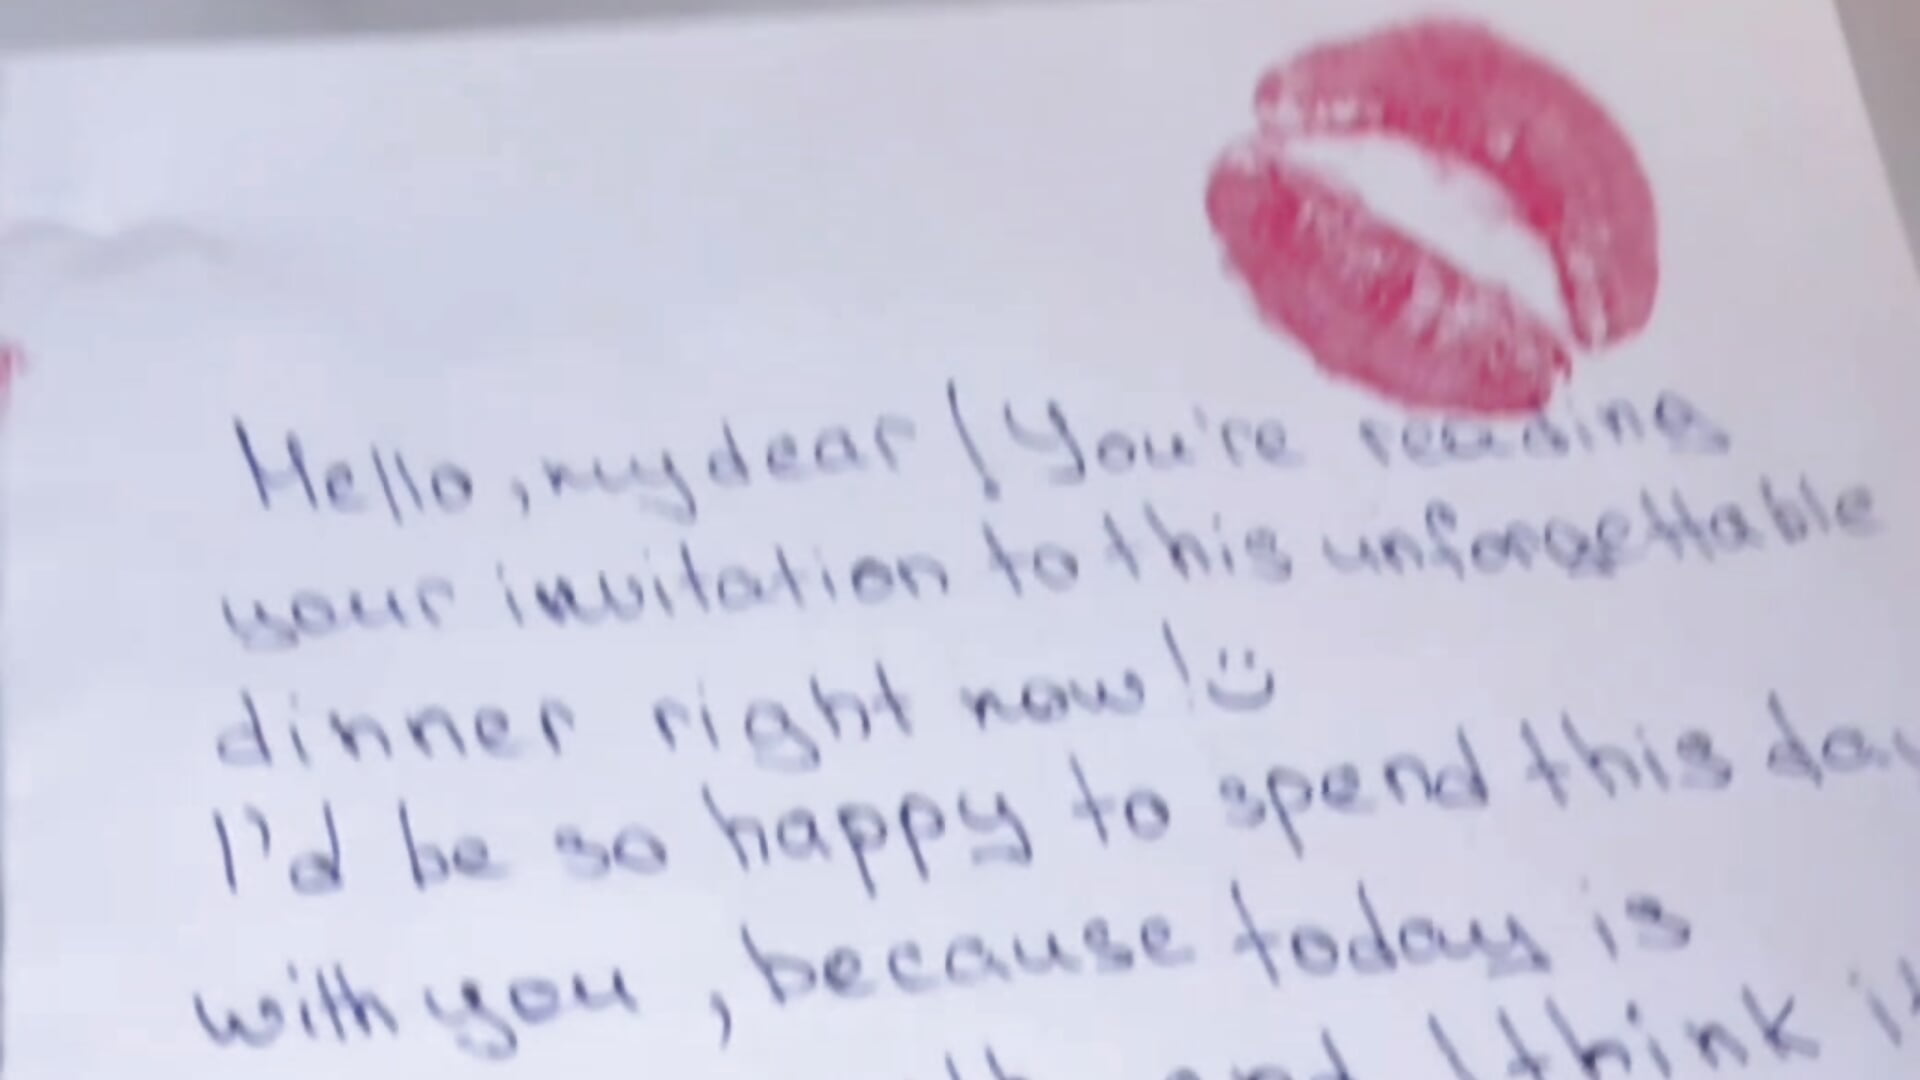 Hello, my dear! You're reading
your invitation to this unforgettable
dinner right now! :)
I'd be so happy to spend this day
with you, because today is
and I think it